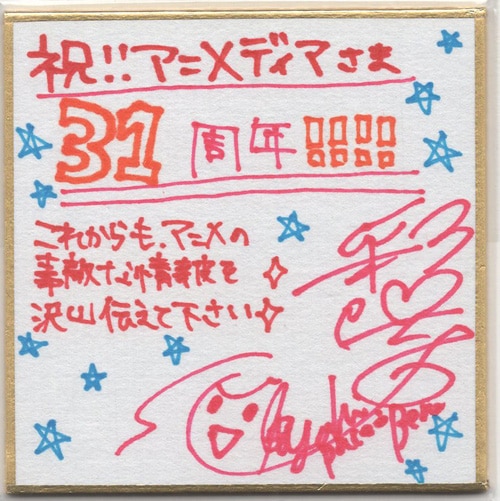 祝!!アニメディアさま
31周年!!!!
これからも、アニメの
素敵な情報を
沢山伝えて下さい✧